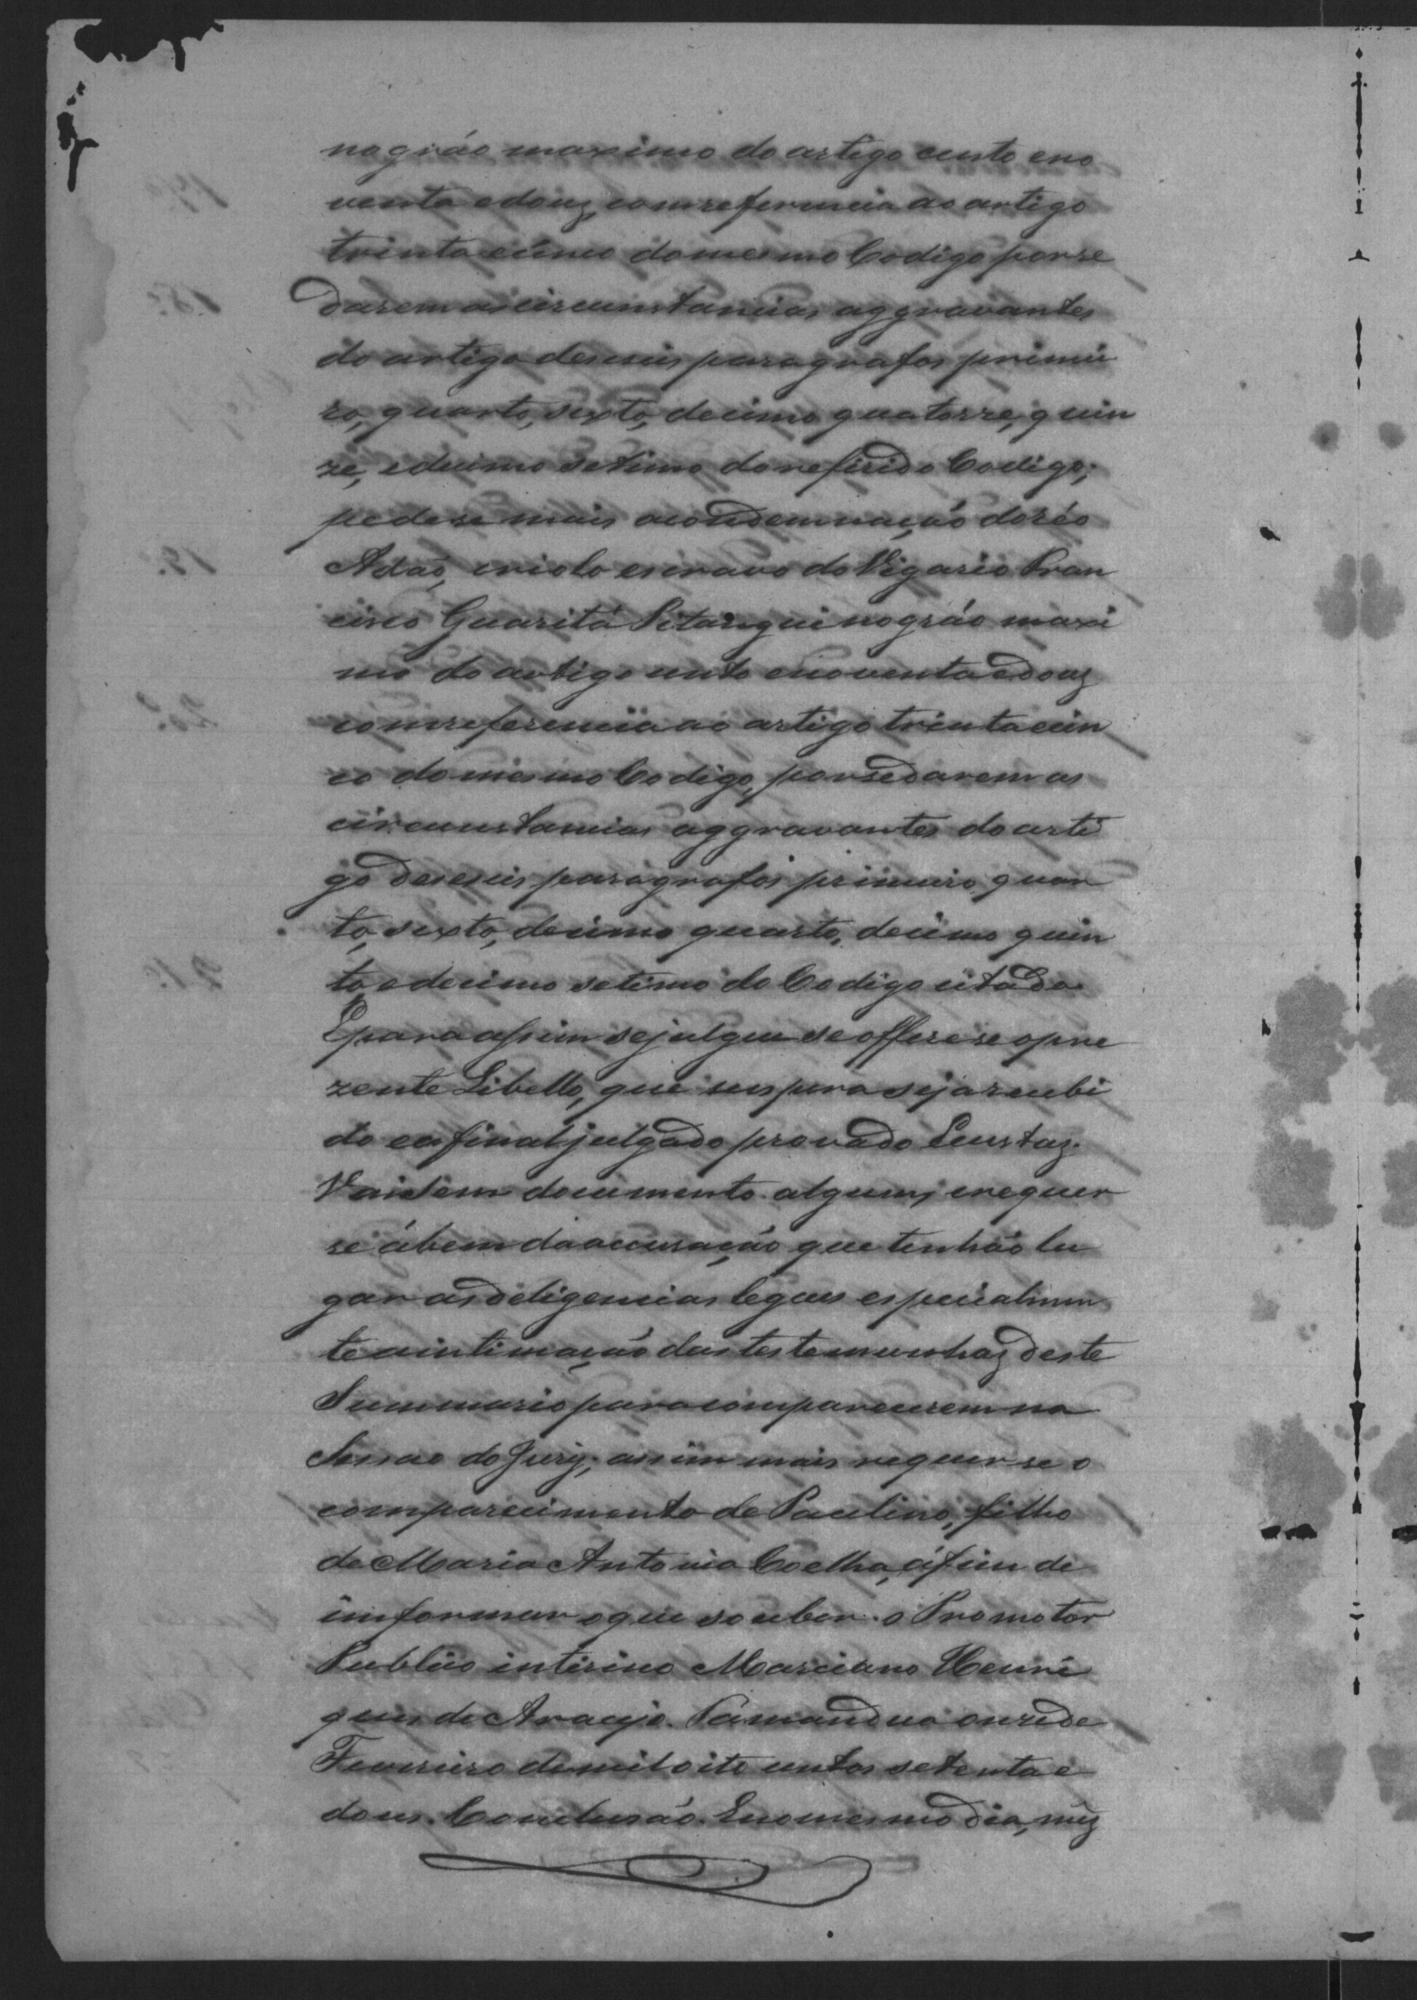 no gráo maximo do artigo cento e no
venta e dous, com referencia ao artigo
trinta e cinco do mesmo Codigo por se
darem as circunstancias aggravantes
do artigo deseseis paragrafos primei
ro, quarto, sexto, decimo quatorze, quin
ze, e decimo setimo do referido Codigo;
pede se mais a condemnação do réo
Adaõ, criolo escravo do Vigario Fran
cisco Guaritá Pitangui no gráo maxi
mo do artigo cento e noventa e dous
com referencia ao artigo trinta e cin
co do mesmo Codigo, por se darem as
circunstancias aggravantes do arti
go deseseis paragrafos primeiro, quar
to, sexto, decimo quarto, decimo quin
to e decimo setimo do Codigo citado.
E para assim se julgue se offerese o pre
zente Libello, que se espera seja recebi
do e afinal julgado provado e custas.
Vai sem documento algum, e requer
se á bem da accusação que tenhão lu
gar as deligencias legaes especialmen
te a intimação das testemunhas deste
Summario para comparecerem na
Sessao do Jury; assim mais requer-se o
comparecimento de Paulino, filho
de Maria Antonia Coelha, áfim de
informar o que souber. o Promotor
Publico interino Marciano Henri
ques de Araujo. Tamanduá onze de
Fevereiro de mil oito centos setenta e
dous. Conclusão. E no mesmo dia, mez